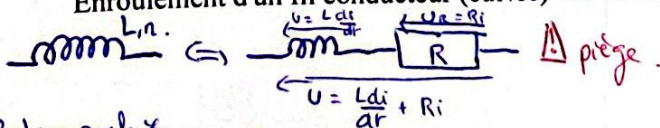 Enroulement d'un fil conducteur (cuivre)
L,r.
U = L di/dt
UR = Ri
R
⚠ piège.
U = Ldi/dt + Ri